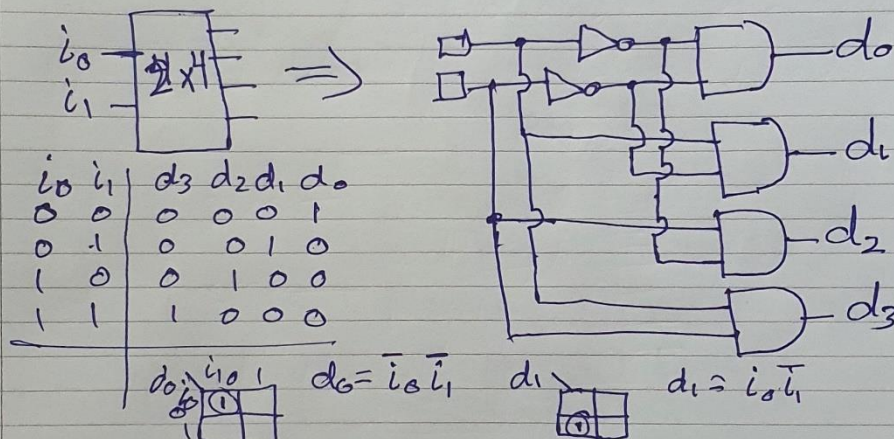 i₀
i₁
2x4
⇒
d₀
d₁
d₂
d₃
i₀ i₁ d₃ d₂ d₁ d₀
0 0 0 0 0 1
0 1 0 0 1 0
1 0 0 1 0 0
1 1 1 0 0 0
d₀ i₁ 0 1 d₀ = i̅₀ i̅₁ d₁ d₁ = i₀ i̅₁
i₀ 0 1 1
1